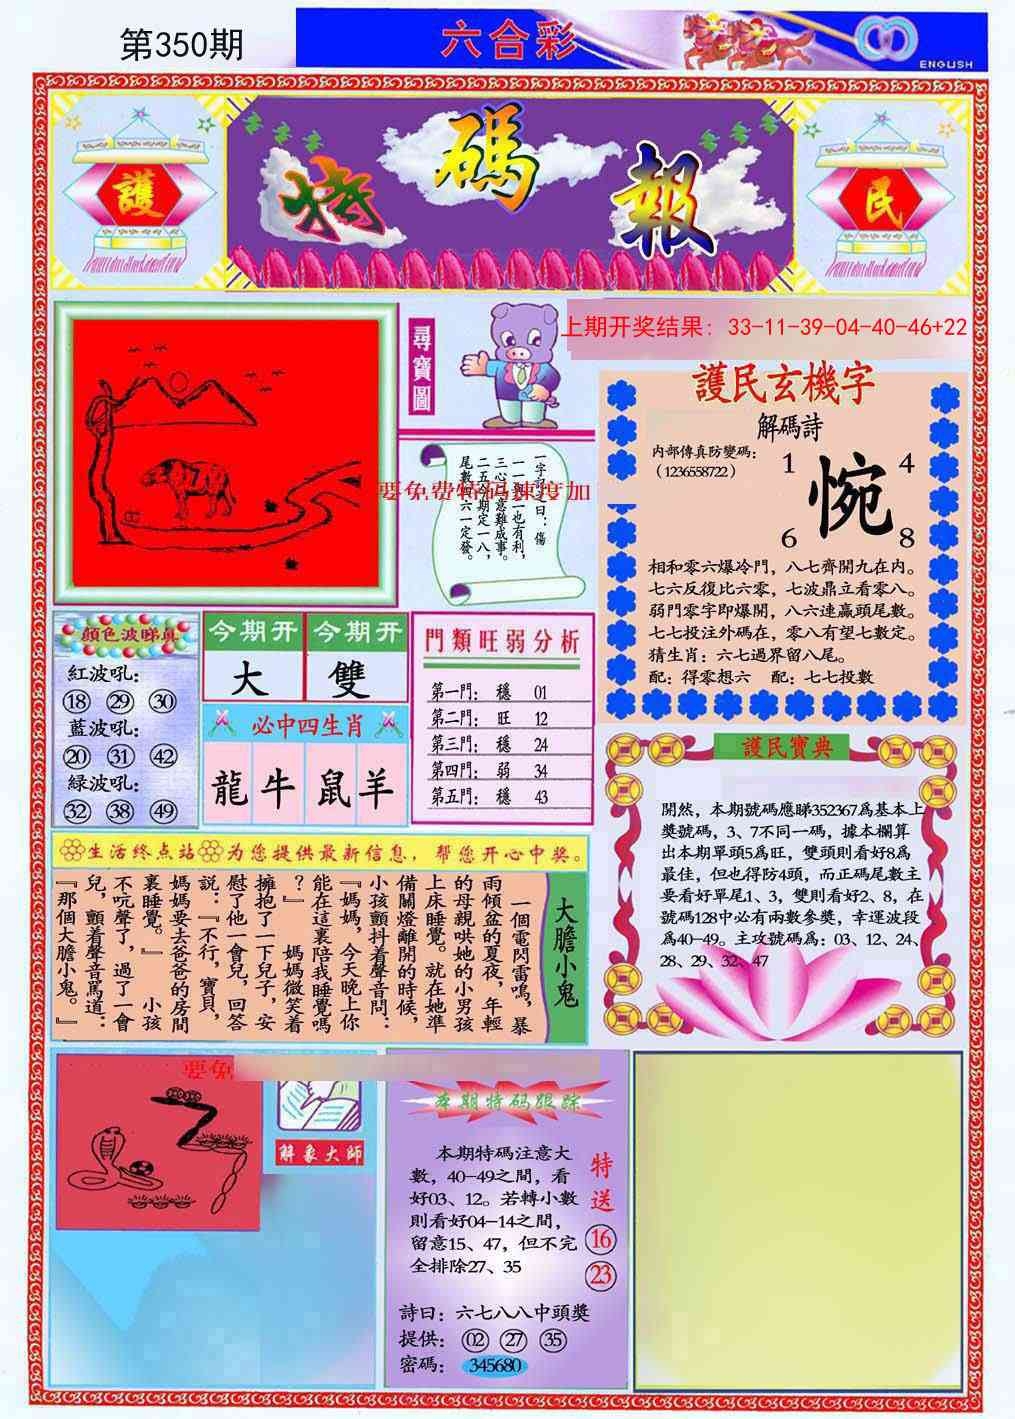 第350期
六合彩
ENGLISH
護
特碼報
民
尋寶圖
上期开奖结果：33-11-39-04-40-46+22
一字記之曰：傷
尾數四六一定發。
要免费特码速度加
護民玄機字
解碼詩
內部傳真防變碼：
（1236558722）
1
4
惋
6
8
相和零六爆冷門，八七齊開九在內。
七六反復比六零，七波鼎立看零八。
弱門零字即爆開，八六連贏頭尾數。
七七投注外碼在，零八有望七數定。
猜生肖：六七過界留八尾。
配：得零想六 配：七七投數
顔色波睇真
紅波吼：
18 29 30
藍波吼：
20 31 42
綠波吼：
32 38 49
今期开
今期开
大
雙
必中四生肖
龍 牛 鼠 羊
門類旺弱分析
第一門： 穩 01
第二門： 旺 12
第三門： 穩 24
第四門： 弱 34
第五門： 穩 43
護民寶典
開然，本期號碼應睇352367爲基本上
獎號碼，3、7不同一碼，據本欄算
出本期單頭5爲旺，雙頭則看好8爲
最佳，但也得防4頭，而正碼尾數主
要看好單尾1、3，雙則看好2、8，在
號碼128中必有兩數參獎，幸運波段
爲40-49。主攻號碼爲：03、12、24、
28、29、32、47
生活终点站 为您提供最新信息，帮您开心中奖。
大膽小鬼
一個電閃雷鳴，暴
雨傾盆的夏夜，年輕
的母親哄她的小男孩
上床睡覺。就在她準
備關燈離開的時候，
小孩顫抖着聲音問：
『媽媽，今天晚上你
能在這裏陪我睡覺嗎
？』 媽媽微笑着
擁抱了一下兒子，安
慰了他一會兒，回答
說：『不行，寶貝，
媽媽要去爸爸的房間
裏睡覺。』 小孩
不吭聲了，過了一會
兒，顫着聲音罵道：
『那個大膽小鬼。』
要免
解象大師
本期特码跟踪
本期特碼注意大
數，40-49之間，看
好03、12。若轉小數
則看好04-14之間，
留意15、47，但不完
全排除27、35
特送
16
23
詩曰：六七八八中頭獎
提供： 02 27 35
密碼： 345680